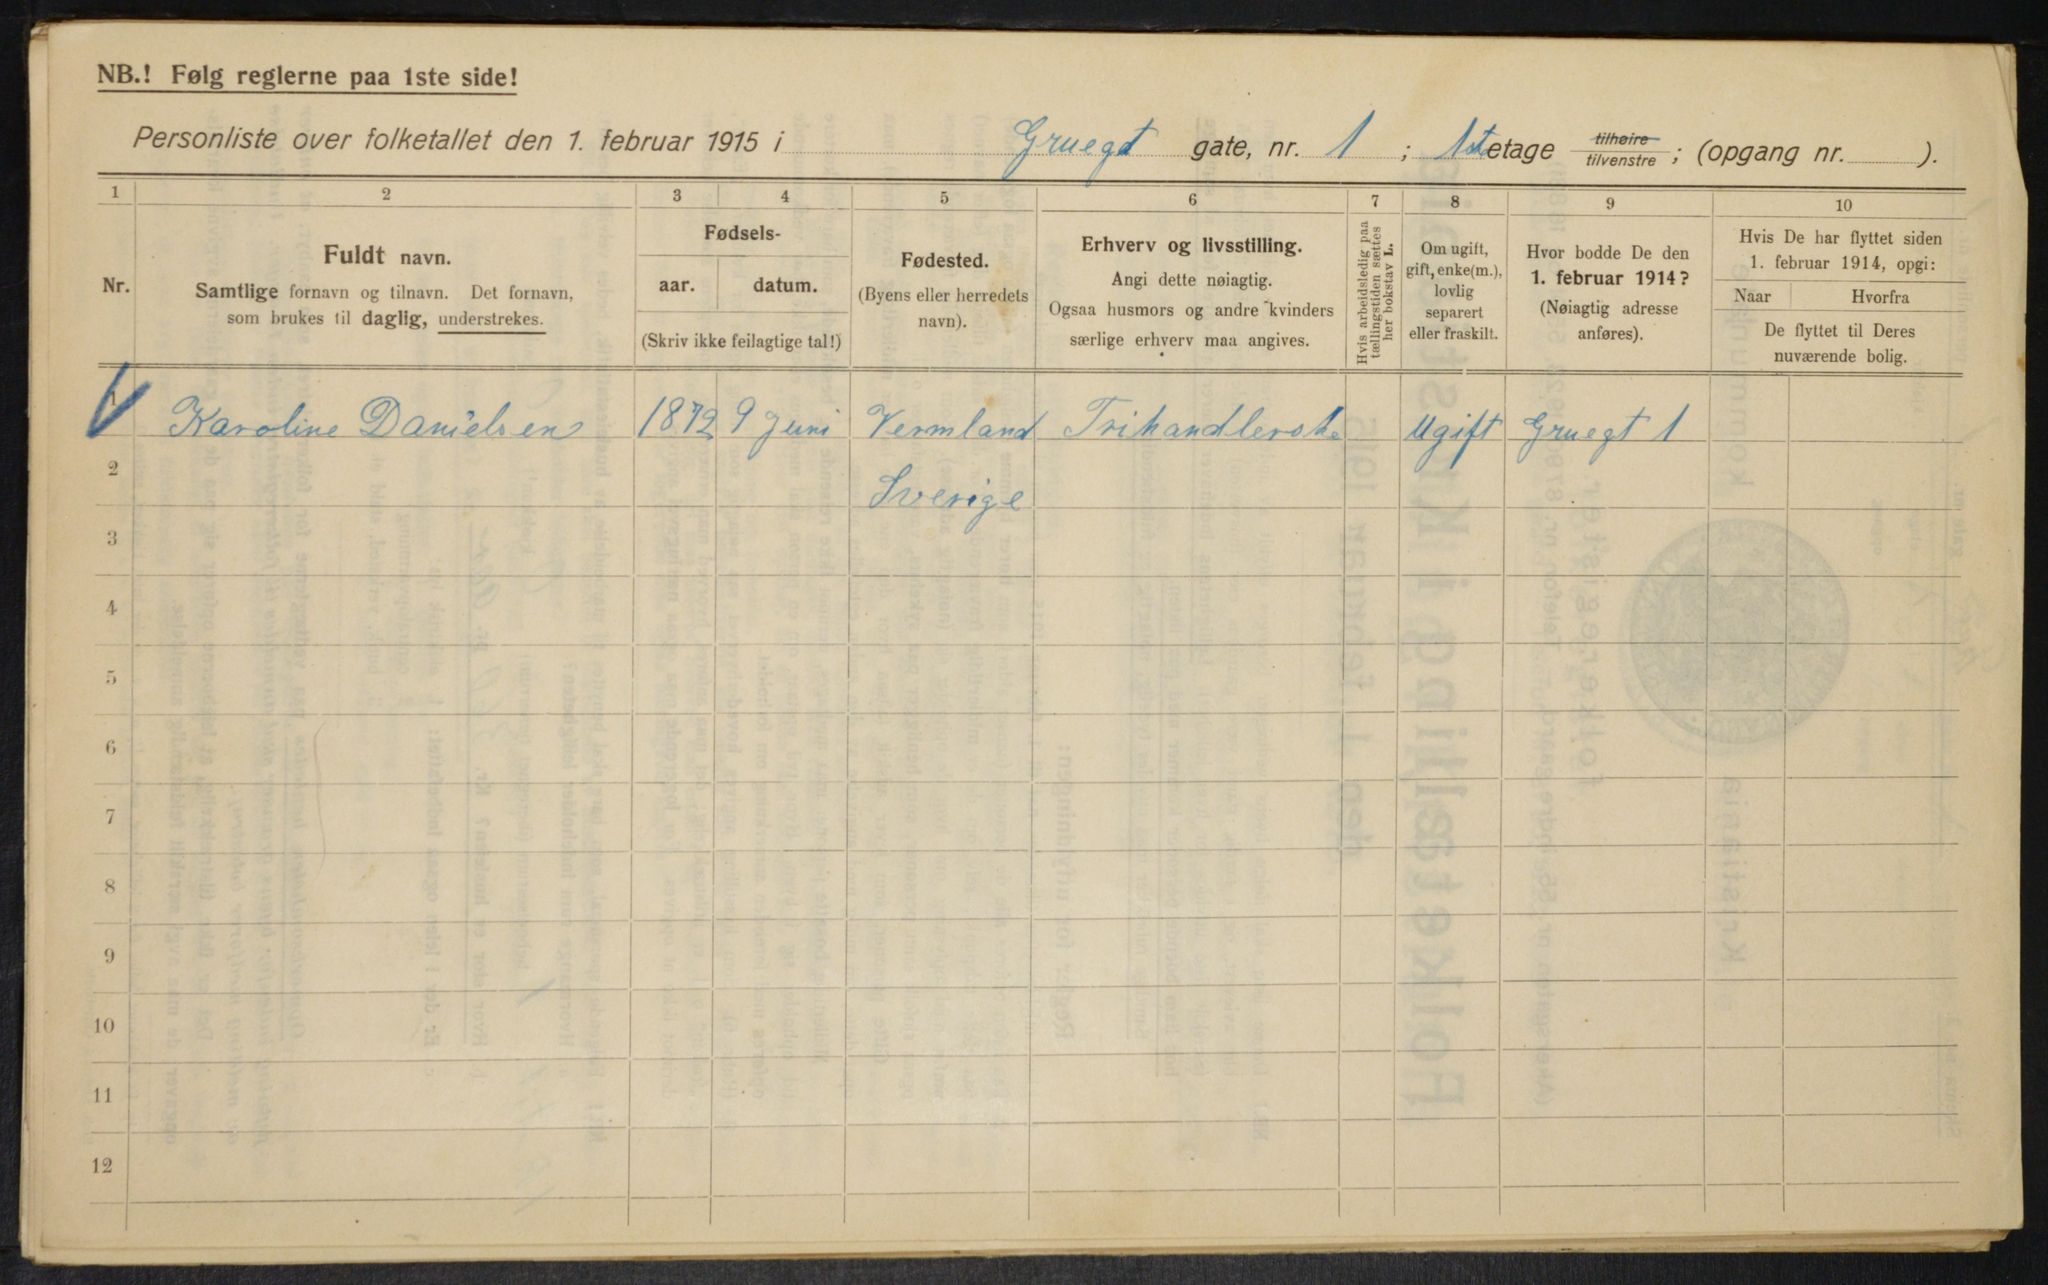 NB.! Følg reglerne paa 1ste side!
Personliste over folketallet den 1. februar 1915 i Gruegt gate, nr. 1 ; 1ste etage tilhøire tilvenstre ; (opgang nr. ).
1 2 3 4 5 6 7 8 9 10
Nr.
Fuldt navn.
Samtlige fornavn og tilnavn. Det fornavn,
som brukes til daglig, understrekes.
Fødsels-
aar. datum.
(Skriv ikke feilagtige tal!)
Fødested.
(Byens eller herredets
navn).
Erhverv og livsstilling.
Angi dette nøiagtig.
Ogsaa husmors og andre kvinders
særlige erhverv maa angives.
Hvis arbeidsledig paa
tællingstiden sættes
her bokstav L.
Om ugift,
gift, enke(m.),
lovlig
separert
eller fraskilt.
Hvor bodde De den
1. februar 1914?
(Nøiagtig adresse
anføres).
Hvis De har flyttet siden
1. februar 1914, opgi:
Naar Hvorfra
De flyttet til Deres
nuværende bolig.
1 Karoline Danielsen 1872 9 Juni Vermland Trihandlerske Ugift Gruegt 1
2 Sverige
3
4
5
6
7
8
9
10
11
12